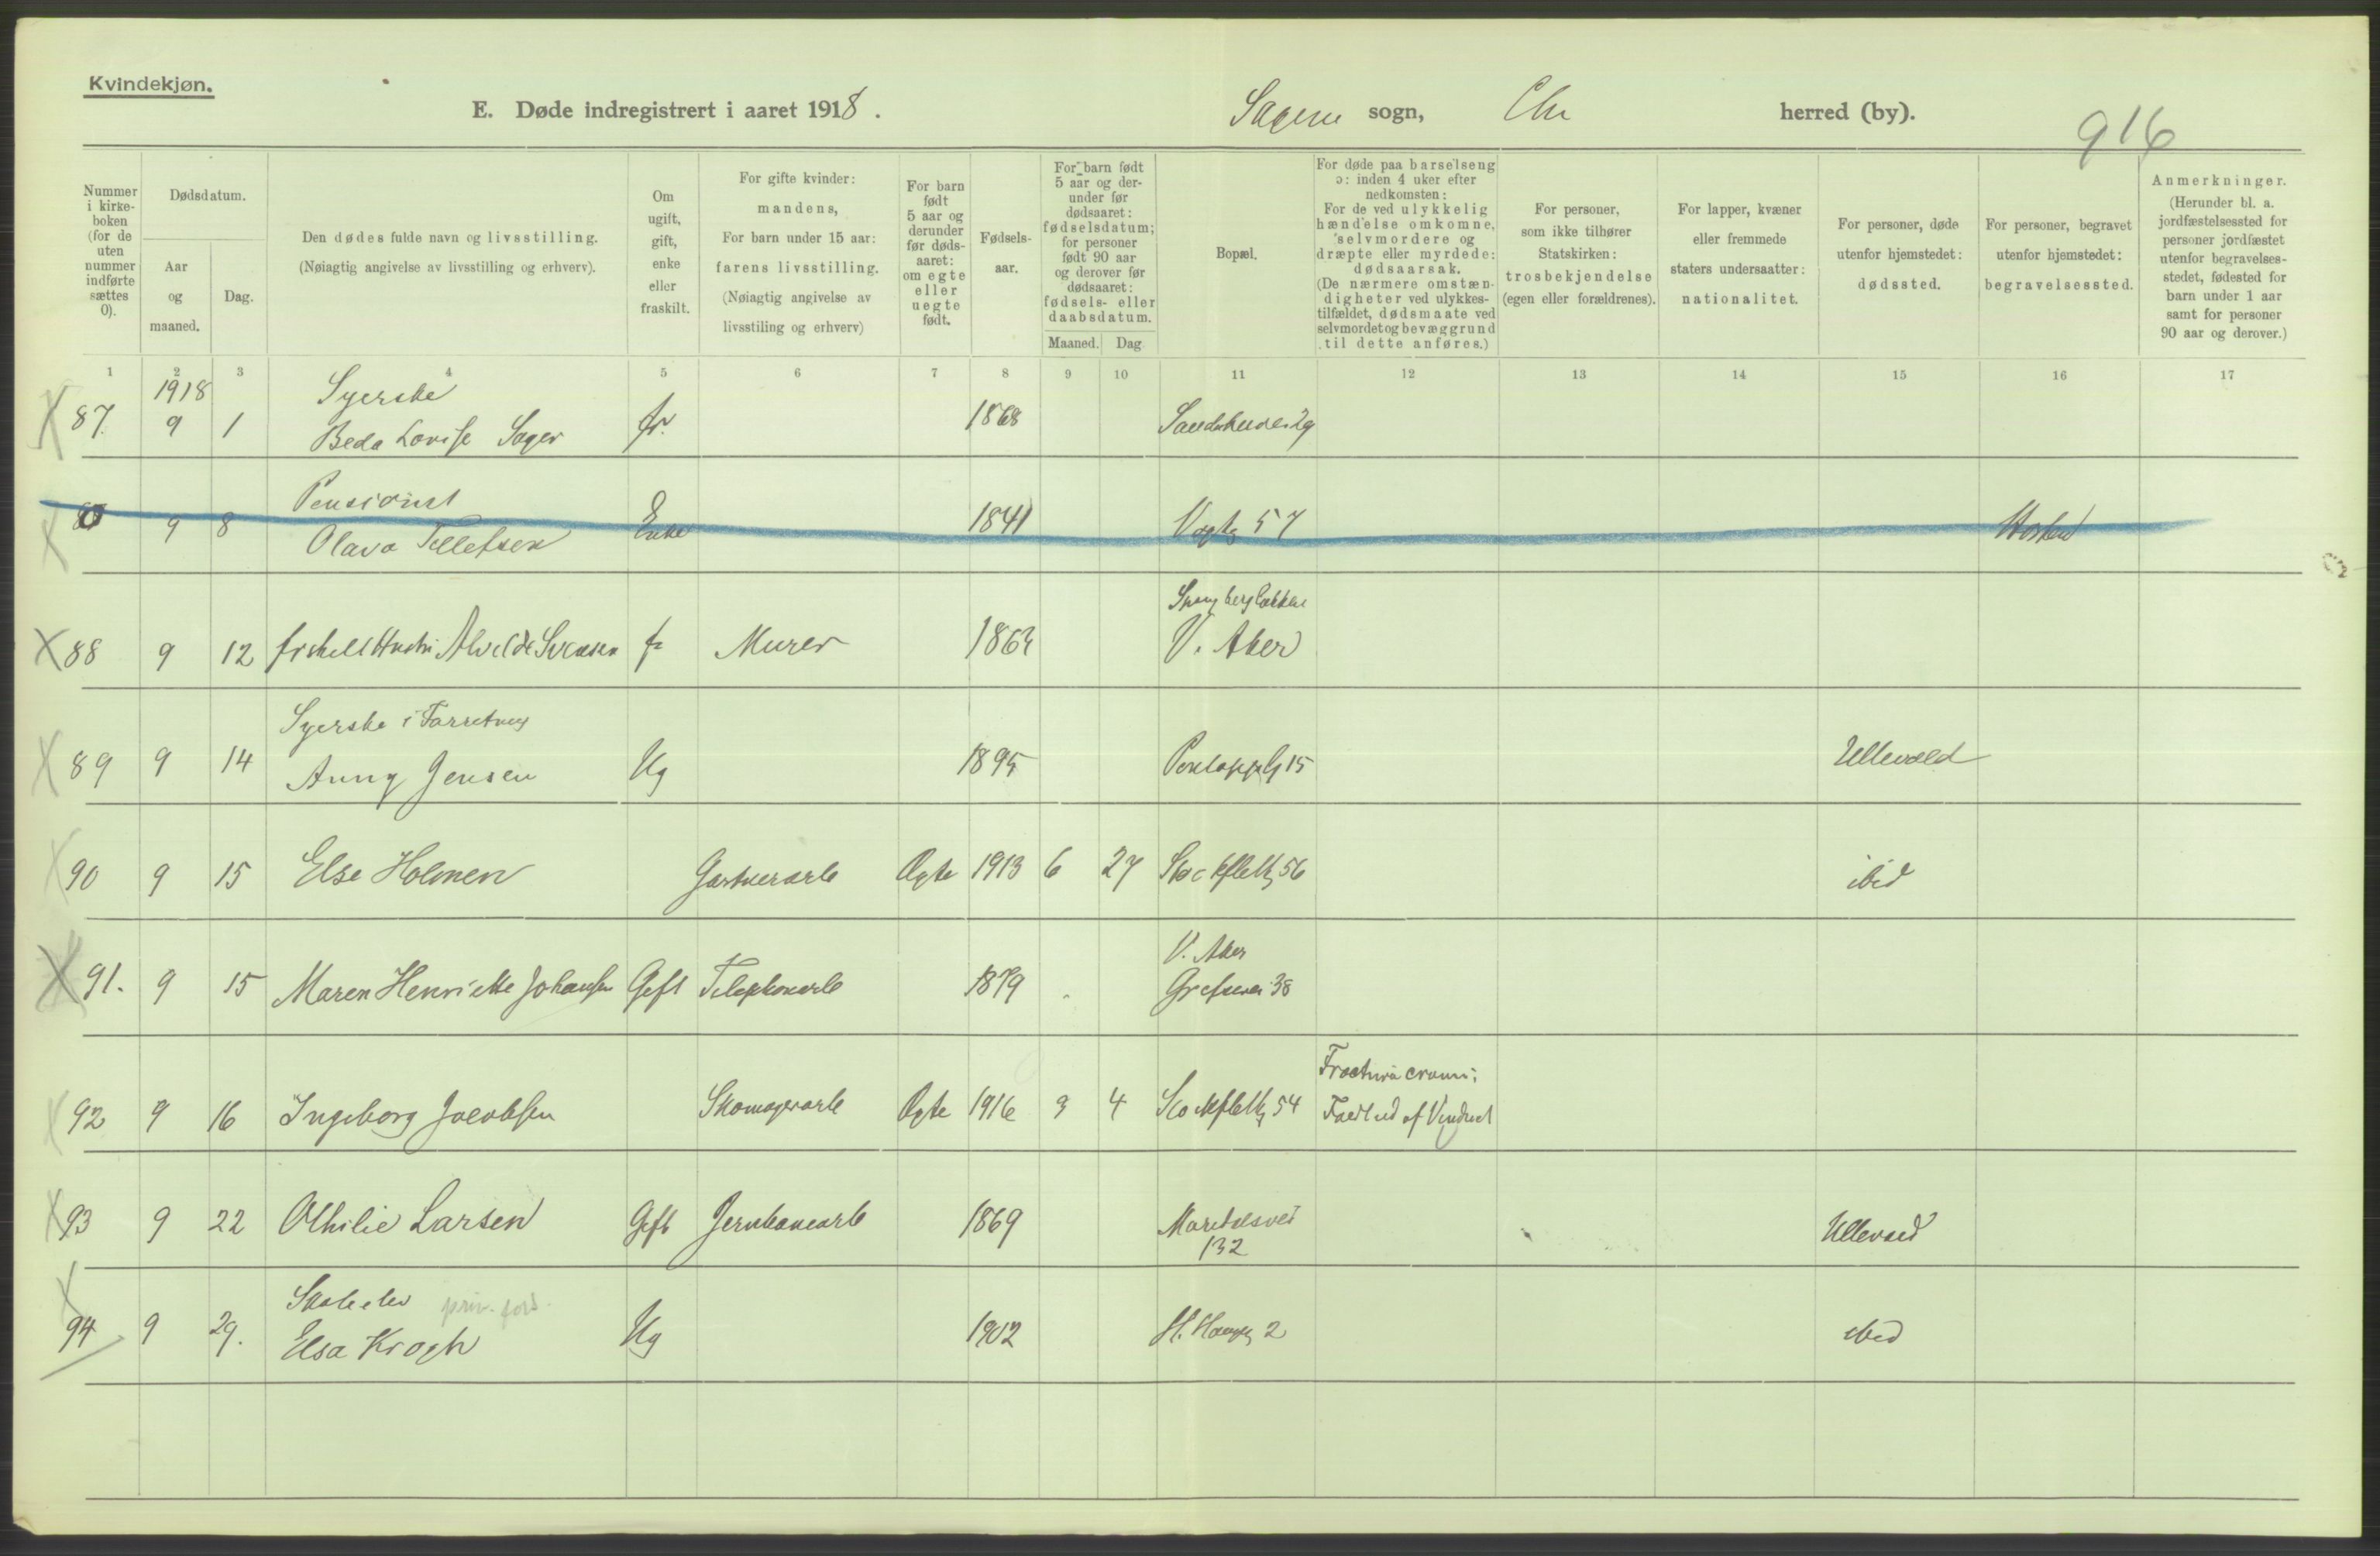 Kvindekjøn.
E. Døde indregistrert i aaret 1918.
Sagene sogn, Chr herred (by).
916
Nummer i kirke-boken (for de uten nummer indførte sættes 0).
Dødsdatum.
Aar og maaned.
Dag.
Den dødes fulde navn og livsstilling.
(Nøiagtig angivelse av livsstilling og erhverv).
Om ugift, gift, enke eller fraskilt.
For gifte kvinder: mandens,
For barn under 15 aar: farens livsstilling.
(Nøiagtig angivelse av livsstiling og erhverv)
For barn født 5 aar og derunder før døds-aaret: om egte eller uegte født.
Fødsels-aar.
For barn født 5 aar og der-under før dødsaaret: fødselsdatum; for personer født 90 aar og derover før dødsaaret: fødsels- eller daabsdatum.
Maaned. Dag
Bopæl.
For døde paa barselseng ɔ: inden 4 uker efter nedkomsten:
For de ved ulykkelig hændelse omkomne, selvmordere og dræpte eller myrdede: dødsaarsak.
(De nærmere omstæn-digheter ved ulykkes-tilfældet, dødsmaate ved selvmordet og bevæggrund til dette anføres.)
For personer, som ikke tilhører Statskirken: trosbekjendelse (egen eller forældrenes).
For lapper, kvæner eller fremmede staters undersaatter: nationalitet.
For personer, døde utenfor hjemstedet: dødssted.
For personer, begravet utenfor hjemstedet: begravelsessted.
Anmerkninger.
(Herunder bl. a. jordfæstelsessted for personer jordfæstet utenfor begravelses-stedet, fødested for barn under 1 aar samt for personer 90 aar og derover.)
1 2 3 4 5 6 7 8 9 10 11 12 13 14 15 16 17
1918
Syerske
87. 9 1 Beda Lovise Sager fr. 1868
Pensionist
0 9 8 Olava Tellefsen Enke 1841 Vogtsg 57
88 9 12 Alvilde Svensen fr Murer V. Aker
Syerske i Forretning
89 9 14 Anny Jensen Ug 1895 15 Ullevold
90 9 15 Else Holmen Gartnerarb Egte 1913 6 27 Stockfletsg 56 ibid
V. Aker
91. 9 15 Maren Henriette Johansen Gift Telephonarb 1879 Grefsenvei 38
Fractura cranii;
92 9 16 Ingeborg Jacobsen Skomagerarb Egte 1916 9 4 Stockfletsg 54 Faldt ud af Vinduet
93 9 22 Othilie Larsen Gift Jernbanearb 1869 Maridalsvei 132 Ullevold
Skoleelev priv. fors.
94 9 29. Elsa Krogh Ug 1902 H. Haugsg 2 ibid